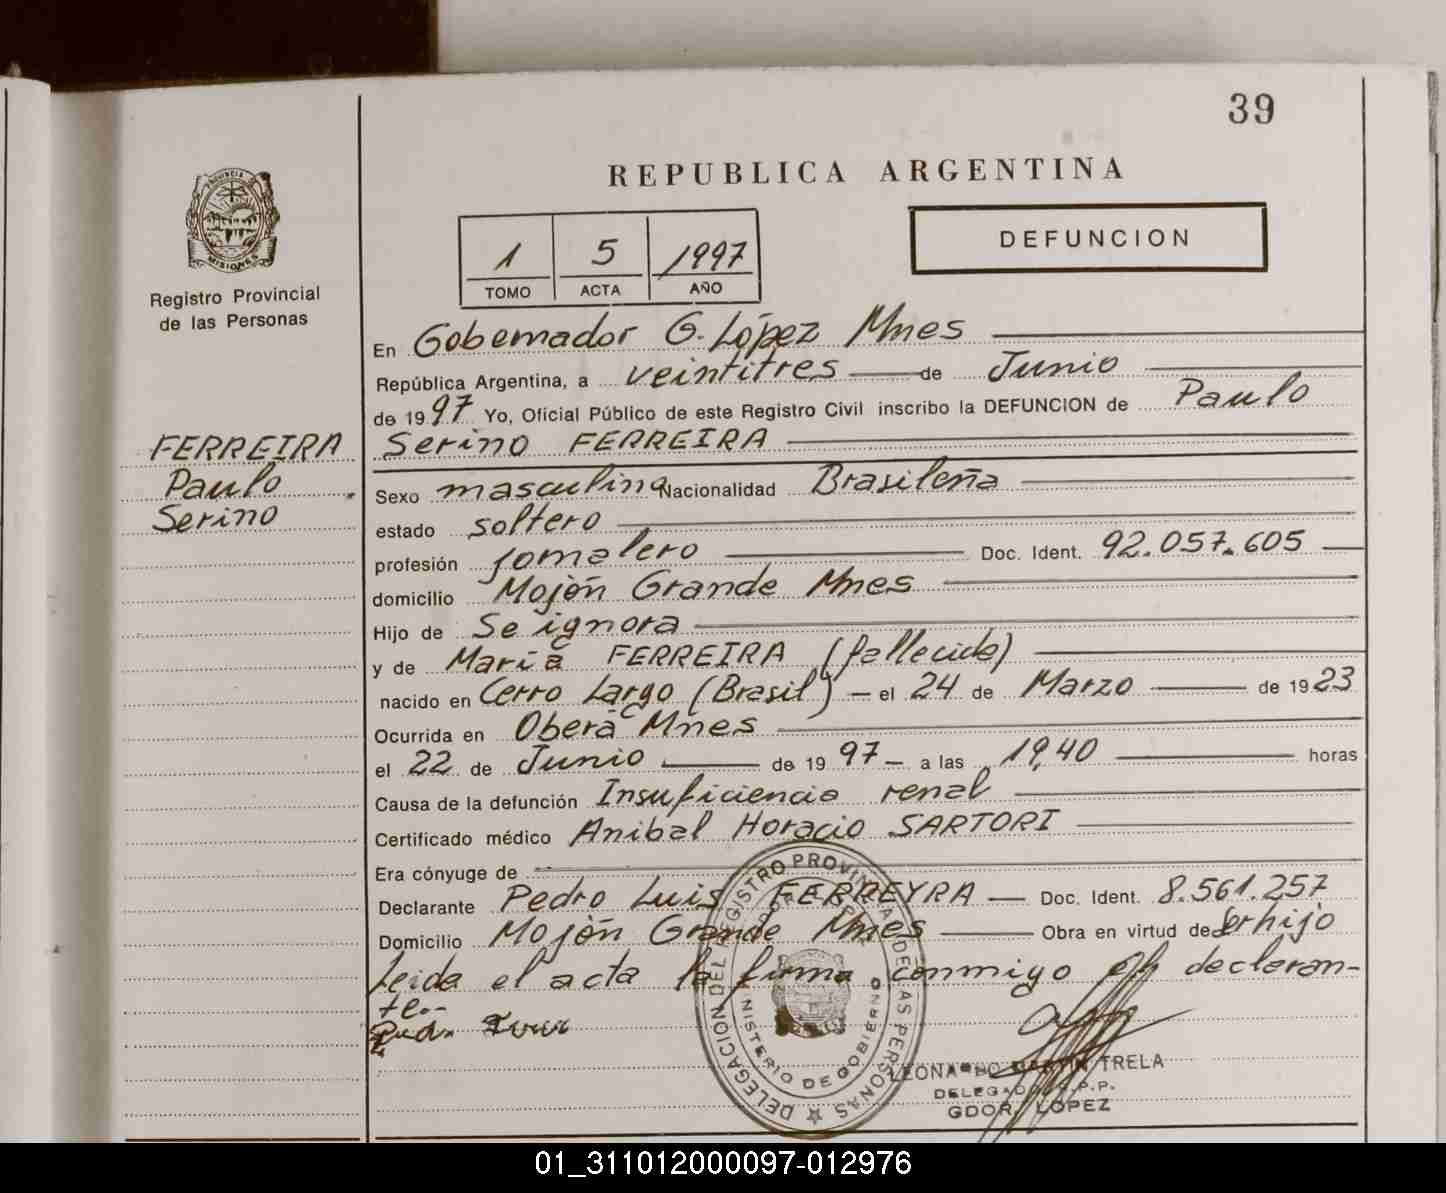 39
REPUBLICA ARGENTINA
PROVINCIA DE
MISIONES
Registro Provincial
de las Personas
1 5 1997
TOMO ACTA AÑO
DEFUNCION
En Gobernador G. López Mnes
República Argentina, a veintitres de Junio
de 1997 Yo, Oficial Público de este Registro Civil inscribo la DEFUNCION de Paulo
Serino FERREIRA
FERREIRA
Paulo
Serino
Sexo masculino Nacionalidad Brasileña
estado soltero
profesión jornalero Doc. Ident. 92.057.605
domicilio Mojón Grande Mnes
Hijo de Se ignora
y de María FERREIRA (fallecida)
nacido en Cerro Largo (Brasil) - el 24 de Marzo de 1923
Ocurrida en Oberá Mnes
el 22 de Junio de 1997 - a las 19,40 horas
Causa de la defunción Insuficiencia renal
Certificado médico Anibal Horacio SARTORI
Era cónyuge de
Declarante Pedro Luis FERREYRA Doc. Ident. 8.561.257
Domicilio Mojón Grande Mnes Obra en virtud de Ser hijo
Leida el acta la firma conmigo el declaran-
te.-
DELEGACION DEL REGISTRO PROVINCIAL DE LAS PERSONAS
MINISTERIO DE GOBIERNO
LEONARDO MARTIN TRELA
DELEGADO R.P.P.
GDOR. LOPEZ
01_311012000097-012976